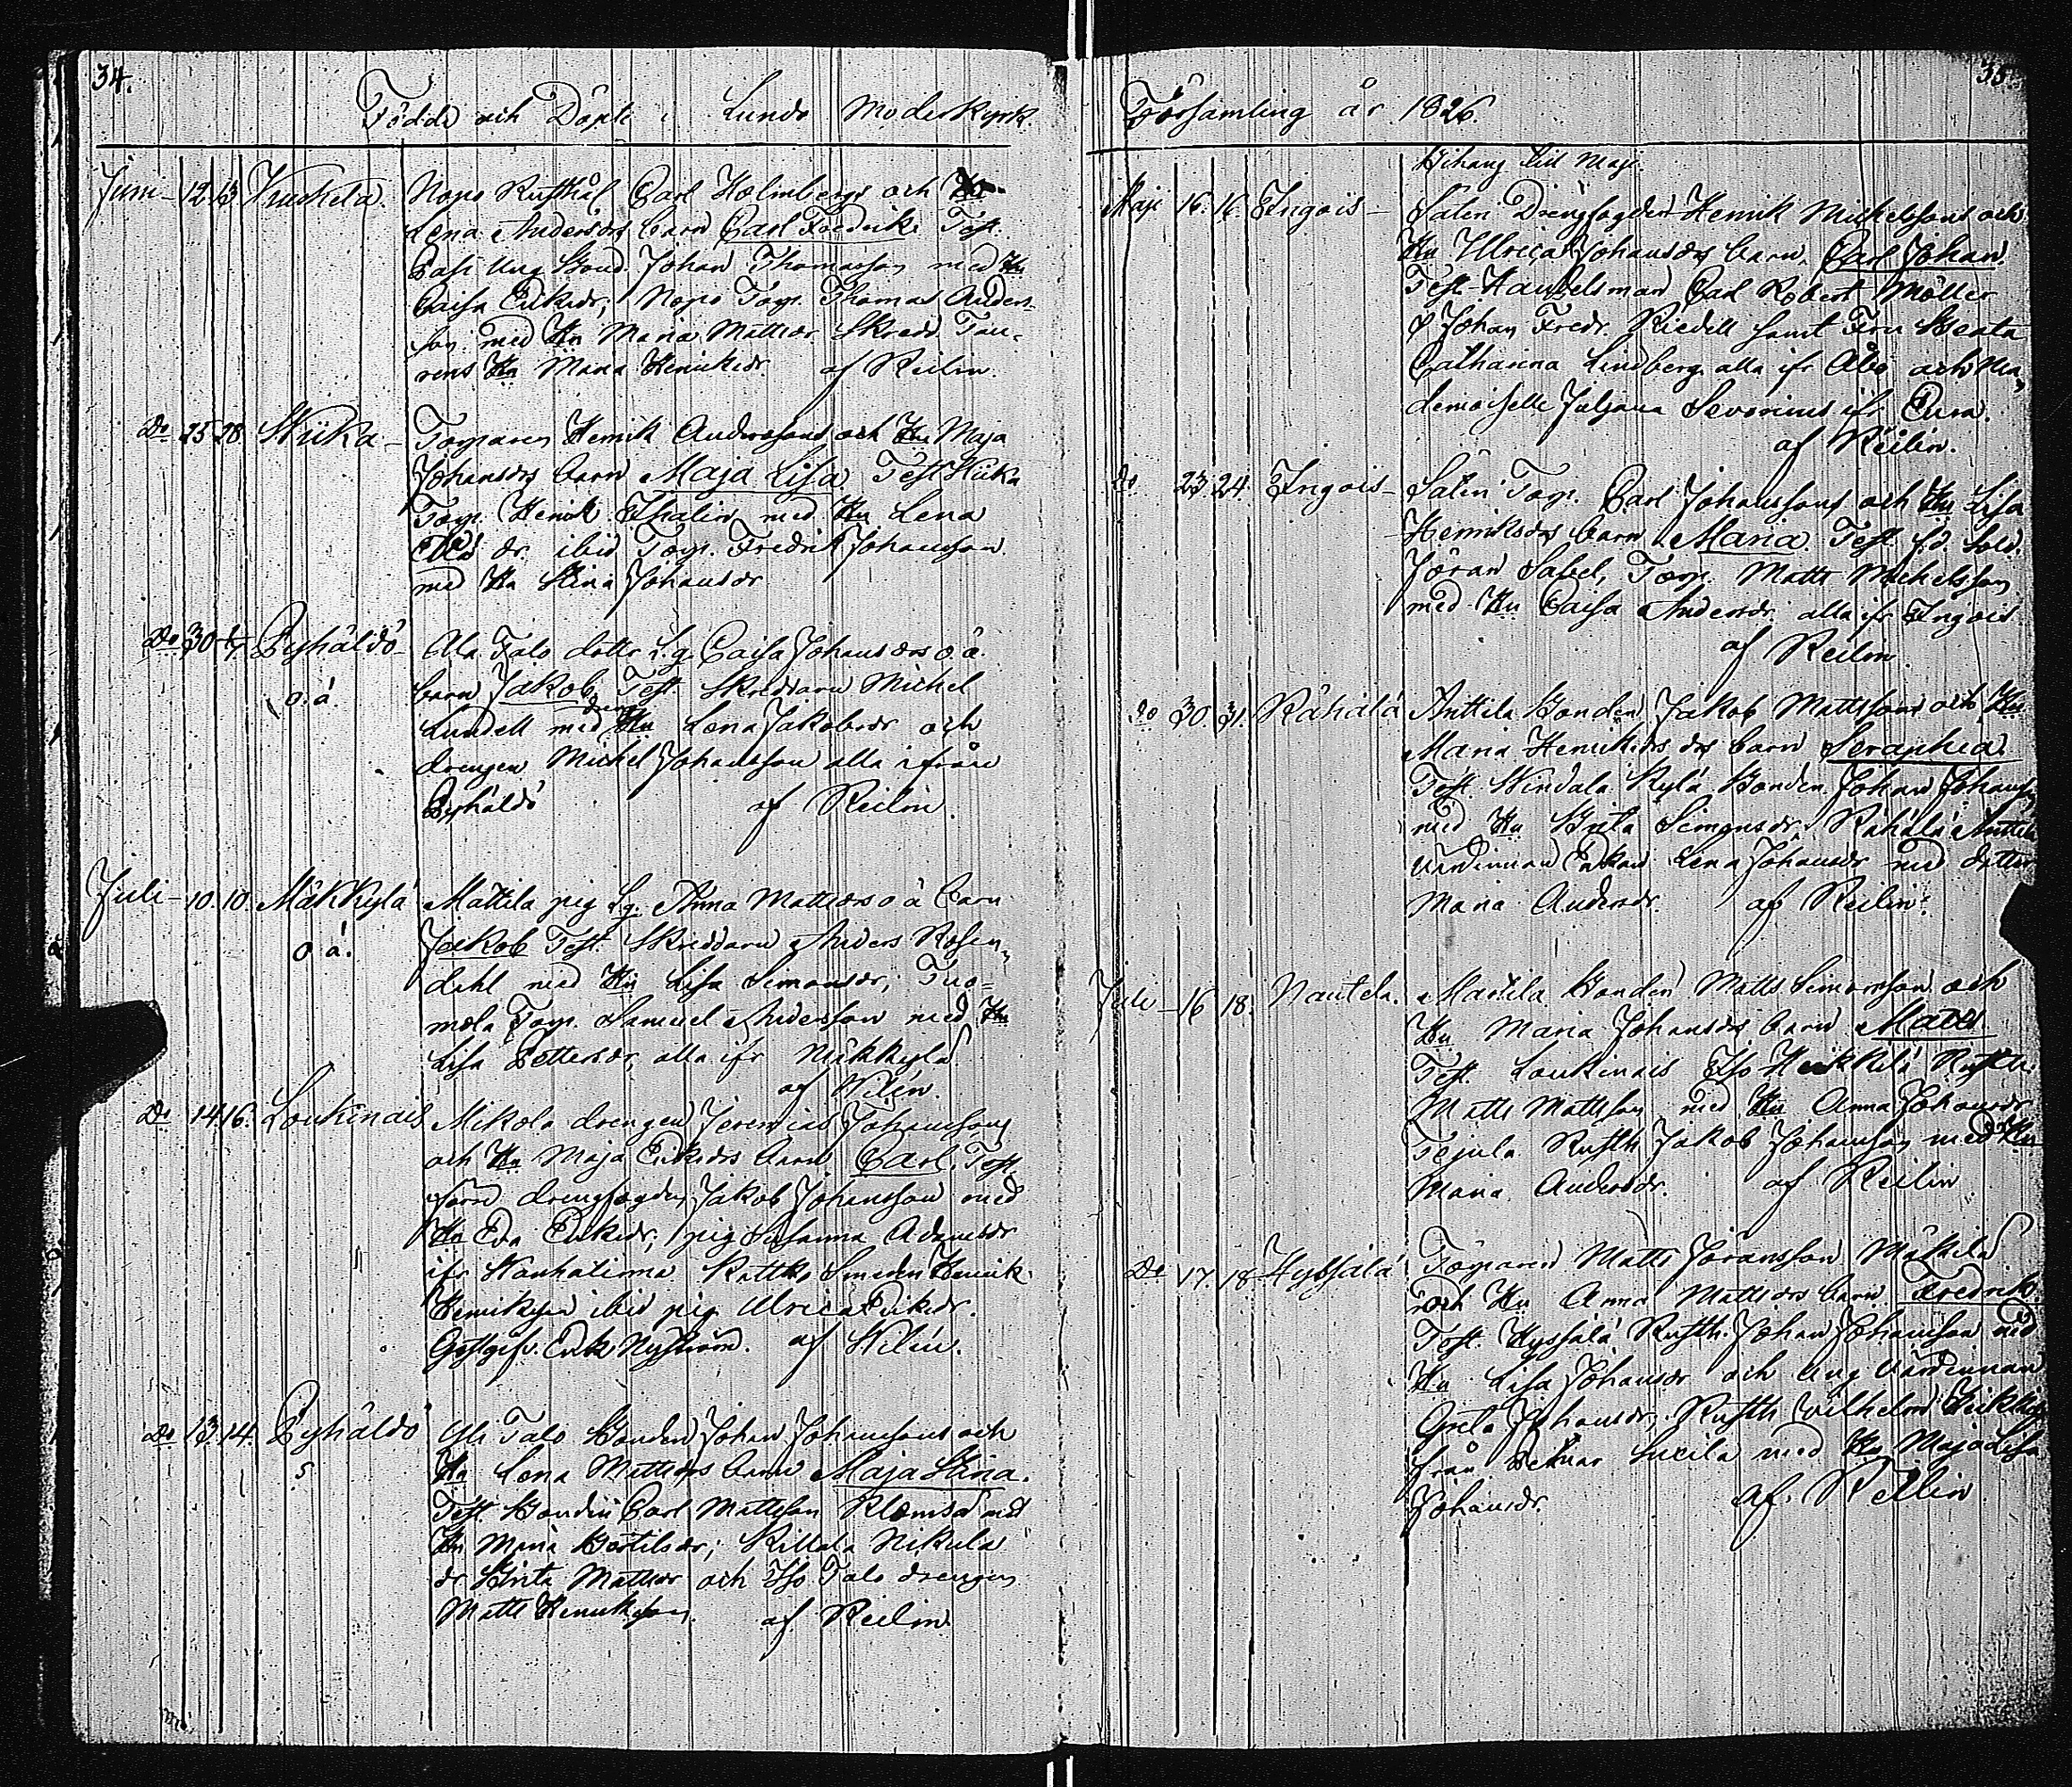 34.
Födde och Döpte i Lundo Moderkyrk.
Juni 12 13 Nopo Rusthål Carl Holmbergs och Hu
Lena Andersdrs barn Carl Fredrik. Test.
Johan Thomasson med Hu
Caisa Eriksdr; Nopo Torp. Thomas Anders-
son med Hu Maria Mattsdr Skredd.
Hu Maria Henriksdr. af Reilin.
Do 25 28 Torparen Henrik Anderssons och Hu Maja
Johansdrs barn Maja Lisa. Test
Torp. Henrik Thalin med Hu Lena
dr. ibid Torp. Fredrik Johansson
med Hu Stina Johansdr
Do 30 Pyhäldö Ala Talo dotter Caisa Johansdrs o.ä.
o.ä. barn Jakob, Test. Skreddaren Michel
Lundell med Hu Lena Jakobsdr och
drengen Michel Johansson alla ifrån
Pyhäldö af Reilin.
Juli 10. 10. Mäkkylä Mattila pig Anna Mattsdrs o ä barn
o ä. Jakob Test. Skreddaren Anders Rosen-
dahl med Hu Lisa Simonsdr, Tuo-
mola Torp. Samuel Andersson med Hu
Lisa Pettersdr, alla ifr Mäkkylä.
af Wilén.
Do 14. 16. Loukinais Mikola drengen Jeremias Johanssons
och Hu Maja Eriksdrs barn Carl, Test.
drengfogden Jakob Johansson med
Hu Eva Eriksdr; pig Susanna Adamsdr
ifr Smeden Henrik
ibid pig Ulrica Eriksdr.
Gästgifv. Erik Nyström. af Wilén.
Do 13. 14. Pyhäldö Yli Talo Bonden Johan Johanssons och
Hu Lena Mattsdrs barn Maja Stina.
Test. Bonden Carl Mattsson med
Hu Maria Bertilsdr; Nikula
dr Greta Mattsdr och Iso Talo drengen
Matts Henriksson. af Reilin.
35
Församling år 1826.
Bihang till Maji.
Maji 16. 16. Ingois Säteri Drengfogden Henrik Michelssons och
Hu Ulrica Johansdrs barn, Carl Johan.
Test. Handelsman Carl Robert Möller
Johan Fredr. Riedell samt Fru Beata
Catharina Lindberg alla ifr Åbo och Ma-
demoiselle Juljana Severinus ifr Eura.
af Reilin.
do 23. 24. Ingois Säteri Torp. Carl Johanssons och Hu Lisa
Henriksdrs barn Maria. Test. fd. Sold.
Jöran Sabel, Torp. Matts Michelsson
med Hu Caisa Andersdr. alla ifr Ingois
af Reilin
do 30. 31. Rähälä Anttila Bonden Jakob Mattssons och Hu
Maria Henriksdrs barn Seraphia.
Test. Kylä Bonden Johan Johansson
med Hu Greta Simonsdr, Rähälä Anttila
värdinnan Enkan Lena Johansdr med dotter
Maria Andersdr. af Reilin.
Juli 16 18. Nautela. Mattila Bonden Matts Simonsson och
Hu Maria Johansdrs barn Matts
Test. Loukinais Iso Heikkilä Rusth.
Matts Mattsson med Hu Anna Johansdr
Tejula Rusth. Jakob Johansson med Hu
Maria Andersdr. af Reilin
Do 17. 18 Hyssälä Torparen Matts Göransson Mäkilä
och Hu Anna Mattsdrs barn Fredrik.
Test. Hyssälä Rusth. Johan Johansson med
Hu Lisa Johansdr och Ung värdinnan
Greta Johansdr; Rusth. Wilhelm
från med Hu Maja Lisa
Johansdr. af Reilin